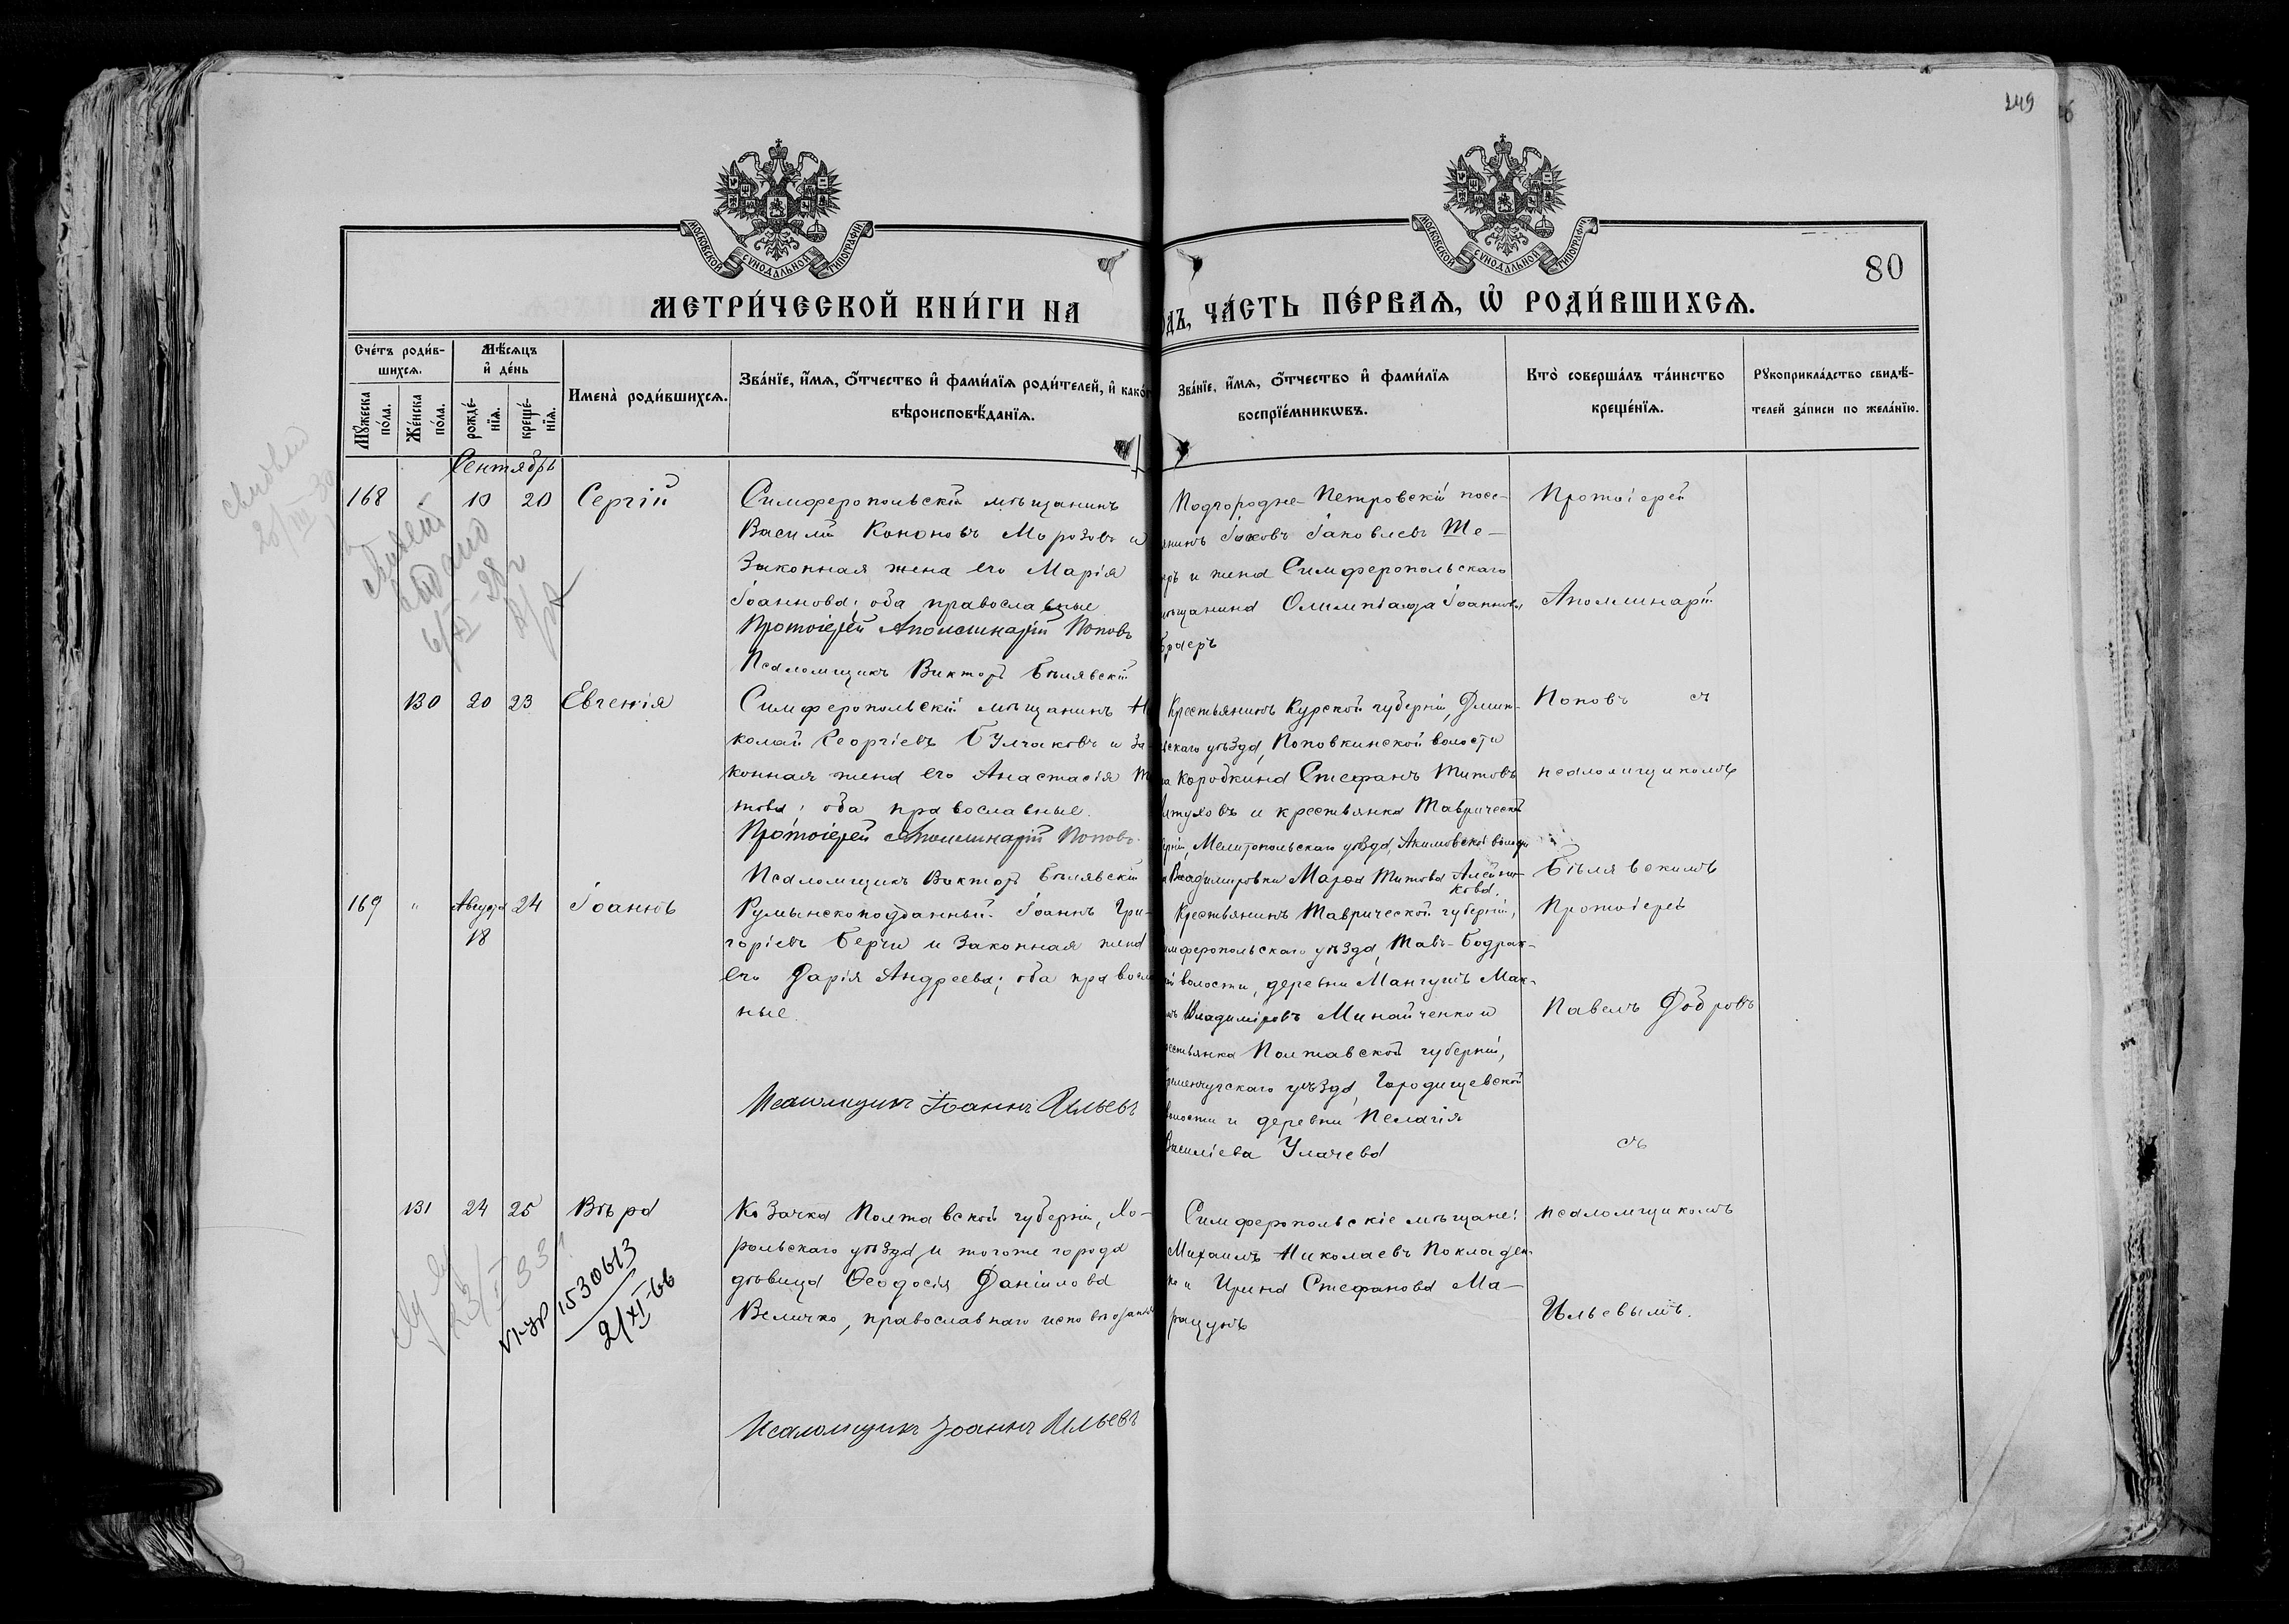 249
80
МОСКОВСКОЙ СУНОДАЛЬНОЙ ТИПОГРАФІИ
МОСКОВСКОЙ СУНОДАЛЬНОЙ ТИПОГРАФІИ
МЕТРИ́ЧЕСКОЙ КНИ́ГИ НА
ОДЪ, ЧА́СТЬ ПЕ́РВАѦ, Ѡ҆ РОДИ́ВШИХСѦ.
Сче́тъ роди́в-
шихсѧ.
Мꙋ́жеска по́ла.
Же́нска по́ла.
Мѣ́сѧцъ
и҆ де́нь
рожде́-нїѧ.
креще́-нїѧ.
Имена̀ роди́вшихсѧ.
Зва́нїе, и҆́мѧ, ѻ҆́тчество и҆ фами́лїѧ роди́телей, и҆ како́г
вѣроисповѣ́данїѧ.
Зва́нїе, и҆́мѧ, ѻ҆́тчество и҆ фами́лїѧ
воспрїе́мникѡвъ.
Кто̀ соверша́лъ та́инство
креще́нїѧ.
Рꙋкоприкла́дство свидѣ́-
телей за́писи по жела́нїю.
Сентябрь
168 10 20 Сергій
Симферопольскій мѣщанинъ
Василій Кононовъ Морозовъ и
Законная жена его Марія
Іоаннова; оба православные
Протоіерей Аполлинарій Поповъ
Псаломщикъ Викторъ Бѣлявскій
Подгородне-Петровскій посе-
янинъ Іаковъ Іаковлевъ Ше-
еръ и жена Симферопольскаго
мѣщанина Олимпіада Іоаннова
Протоіерей
Аполлинарій
130 20 23 Евгенія
Симферопольскій мѣщанинъ Ни
колай Георгіевъ Булгаковъ и За-
конная жена его Анастасія Ти
това; оба православные.
Протоіерей Аполлинарій Поповъ
Псаломщикъ Викторъ Бѣлявскій
Крестьянинъ Курской губерніи, Дмит-
скаго уѣзда, Поповкинской волости
на Коробкина Стефанъ Титовъ
туховъ и крестьянка Таврической
ерніи, Мелитопольскаго уѣзда, Акимовской волости
Владимировки Марѳа Титова Алейни-
кова.
Поповъ съ
псаломщикомъ
Бѣлявскимъ
169 " Августа 18 24 Іоаннъ
Румынскоподданный Іоаннъ Гри-
горіевъ Берчи и Законная жена
его Дарія Андреева; оба правосла
ные.
Псаломщикъ Іоаннъ Ильевъ
Крестьянинъ Таврической губерніи,
имферопольскаго уѣзда, Тавъ-Бодрак-
ой волости, деревни Мангушъ Мак-
мъ Владиміровъ Минайченко и
рестьянка Полтавской губерніи,
ременчугскаго уѣзда, Городищевской
волости и деревни Пелагія
Василіева Улачева
Протоіерей
Павелъ Добровъ
съ
131 24 25 Вѣра
Козачка Полтавской губерніи, Хо-
рольскаго уѣзда и тогоже города
дѣвица Ѳеодосія Даніилова
Величко, православнаго исповѣданія
Псаломщикъ Іоаннъ Ильевъ
Симферопольскіе мѣщане:
Михаилъ Николаевъ Покладен-
ко и Ирина Стефанова Ма-
рацунъ
псаломщикомъ
Ильевымъ.
1530613
2/XI-66